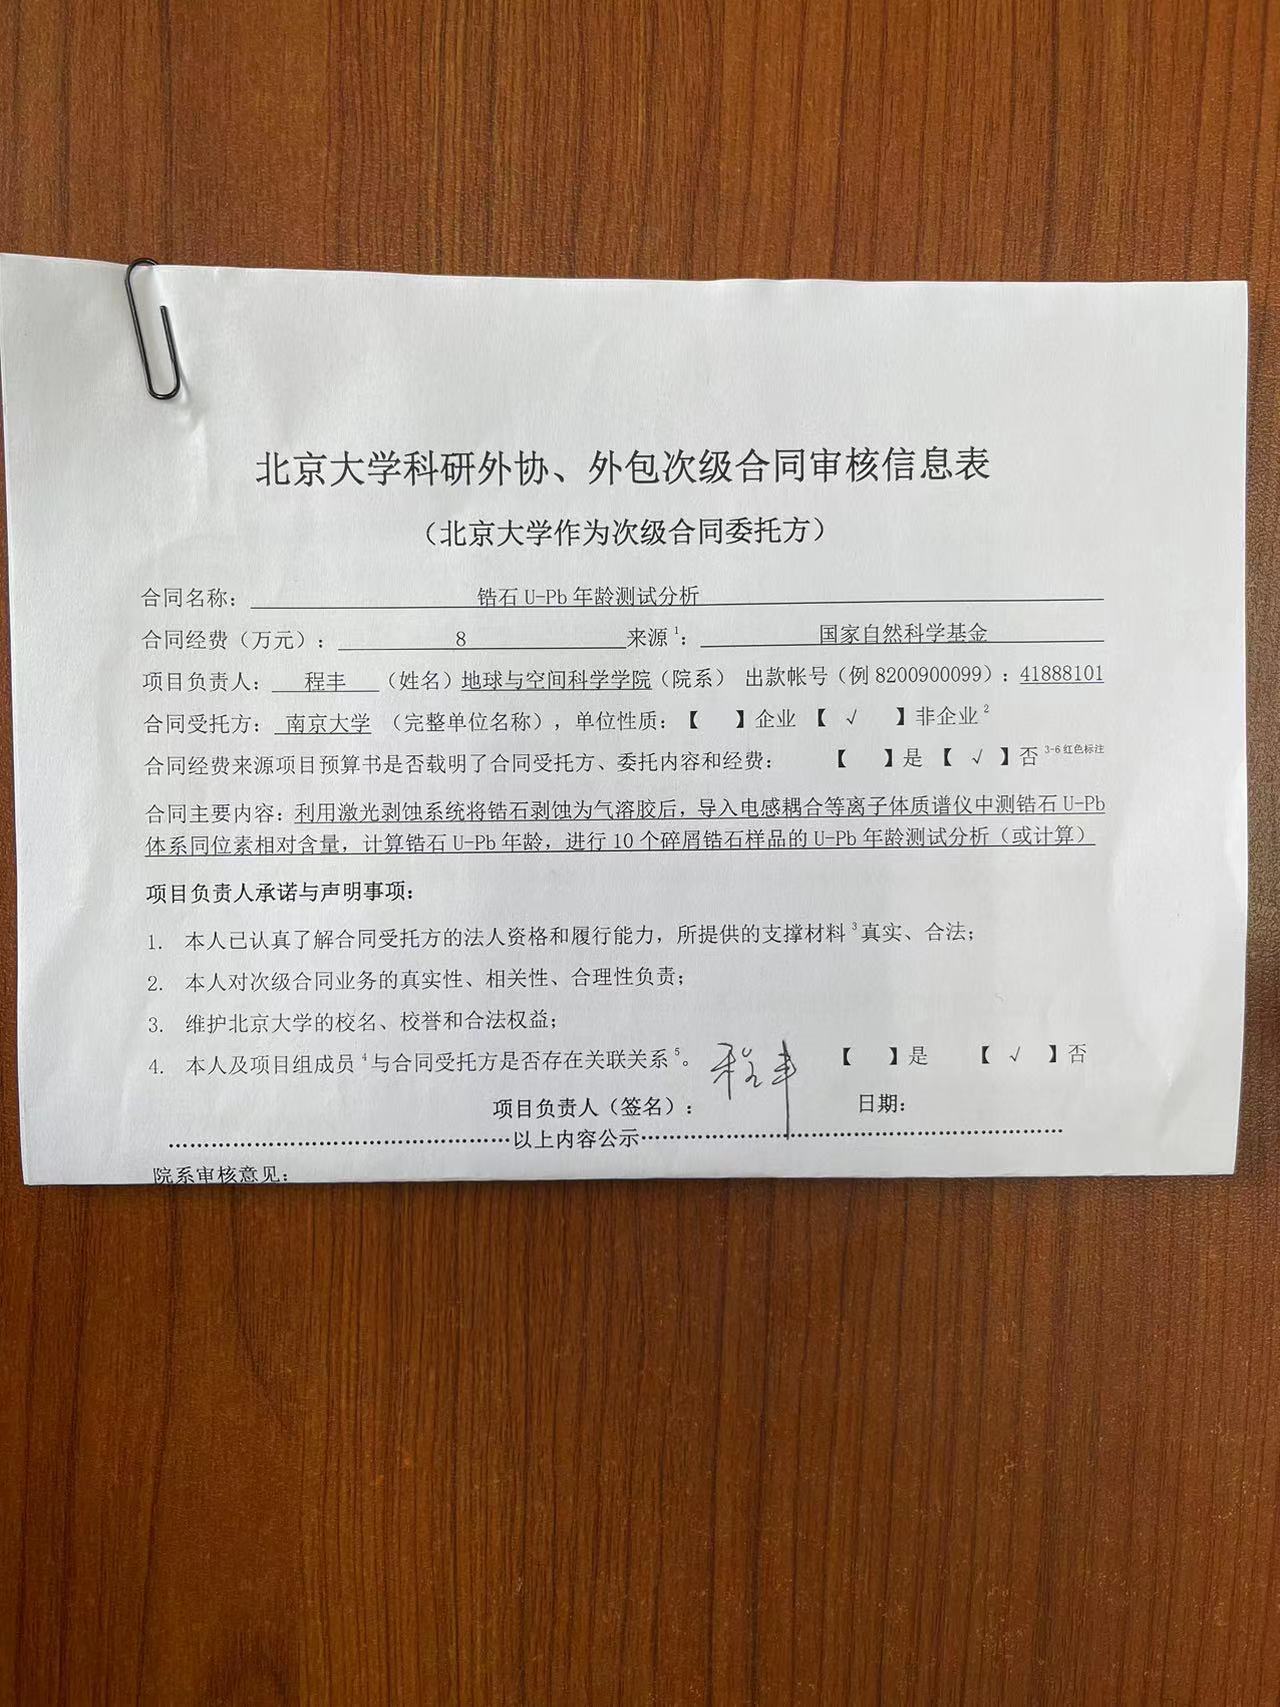 北京大学科研外协、外包次级合同审核信息表
（北京大学作为次级合同委托方）
合同名称： 锆石 U-Pb 年龄测试分析
合同经费（万元）： 8 来源¹： 国家自然科学基金
项目负责人： 程丰 （姓名）地球与空间科学学院（院系） 出款帐号（例 8200900099）：41888101
合同受托方： 南京大学 （完整单位名称），单位性质：【 】企业 【 √ 】非企业²
合同经费来源项目预算书是否载明了合同受托方、委托内容和经费： 【 】是 【 √ 】否 ³⁻⁶ 红色标注
合同主要内容：利用激光剥蚀系统将锆石剥蚀为气溶胶后，导入电感耦合等离子体质谱仪中测锆石 U-Pb
体系同位素相对含量，计算锆石 U-Pb 年龄，进行 10 个碎屑锆石样品的 U-Pb 年龄测试分析（或计算）
项目负责人承诺与声明事项：
1. 本人已认真了解合同受托方的法人资格和履行能力，所提供的支撑材料³真实、合法；
2. 本人对次级合同业务的真实性、相关性、合理性负责；
3. 维护北京大学的校名、校誉和合法权益；
4. 本人及项目组成员⁴与合同受托方是否存在关联关系⁵。 【 】是 【 √ 】否
项目负责人（签名）： 程丰 日期：
……………………………………………………以上内容公示……………………………………………………
院系审核意见：